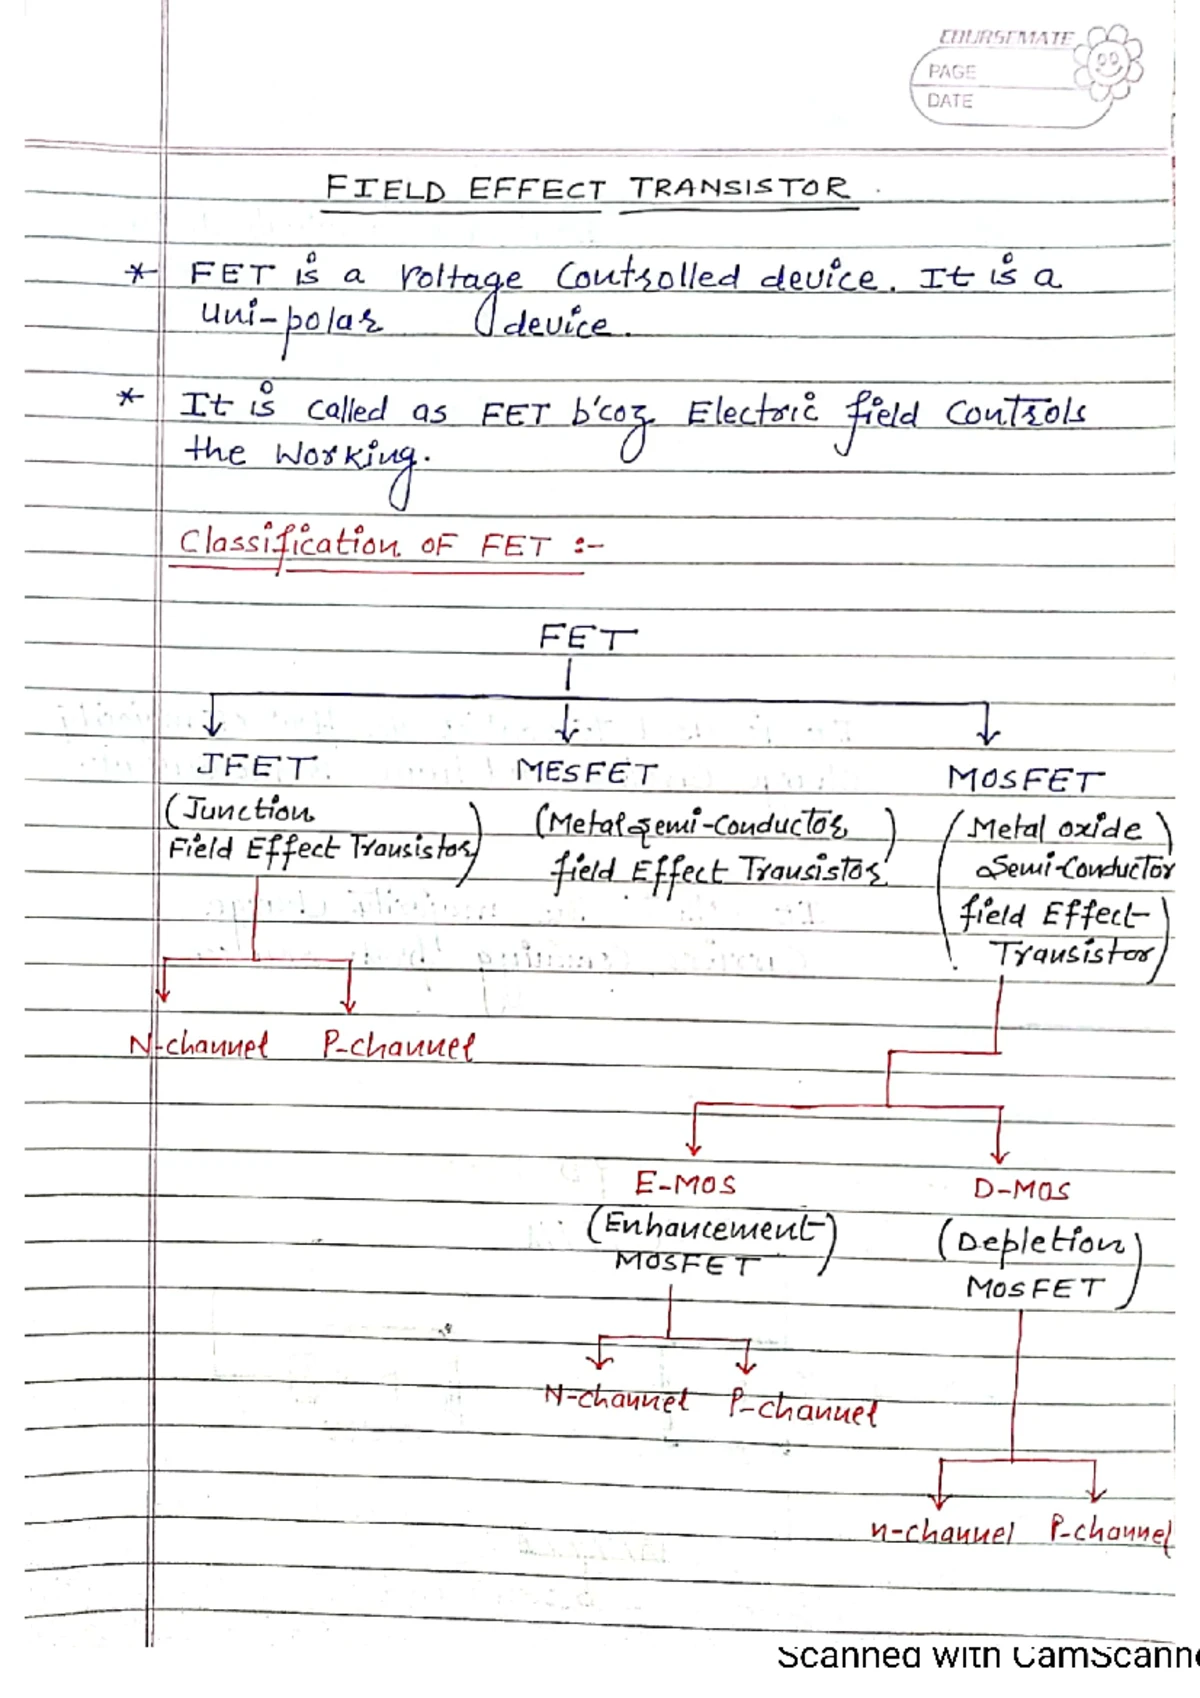 COURSEMATE
PAGE
DATE
FIELD EFFECT TRANSISTOR.
* FET is a Voltage Controlled device. It is a
uni-polar device.
* It is called as FET b'coz Electric field Controls
the Working.
Classification OF FET :-
FET
JFET. MESFET MOSFET
(Junction
Field Effect Transistor)
(Metal semi-Conductor
field Effect Transistor)
(Metal oxide
Semi-Conductor
field Effect
Transistor)
N-channel P-channel
E-MOS D-MOS
(Enhancement
MOSFET)
(Depletion
MOSFET)
N-channel P-channel
n-channel P-channel
Scanned with CamScanne